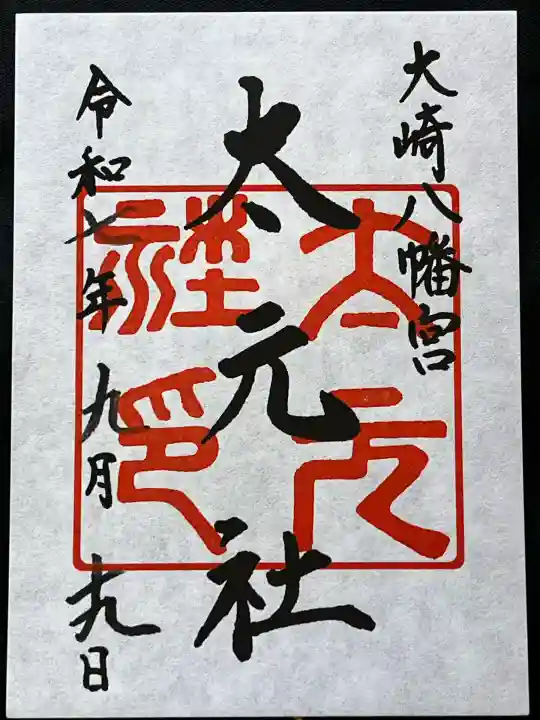 大崎八幡宮
太元社
太元社印
令和七年九月十九日